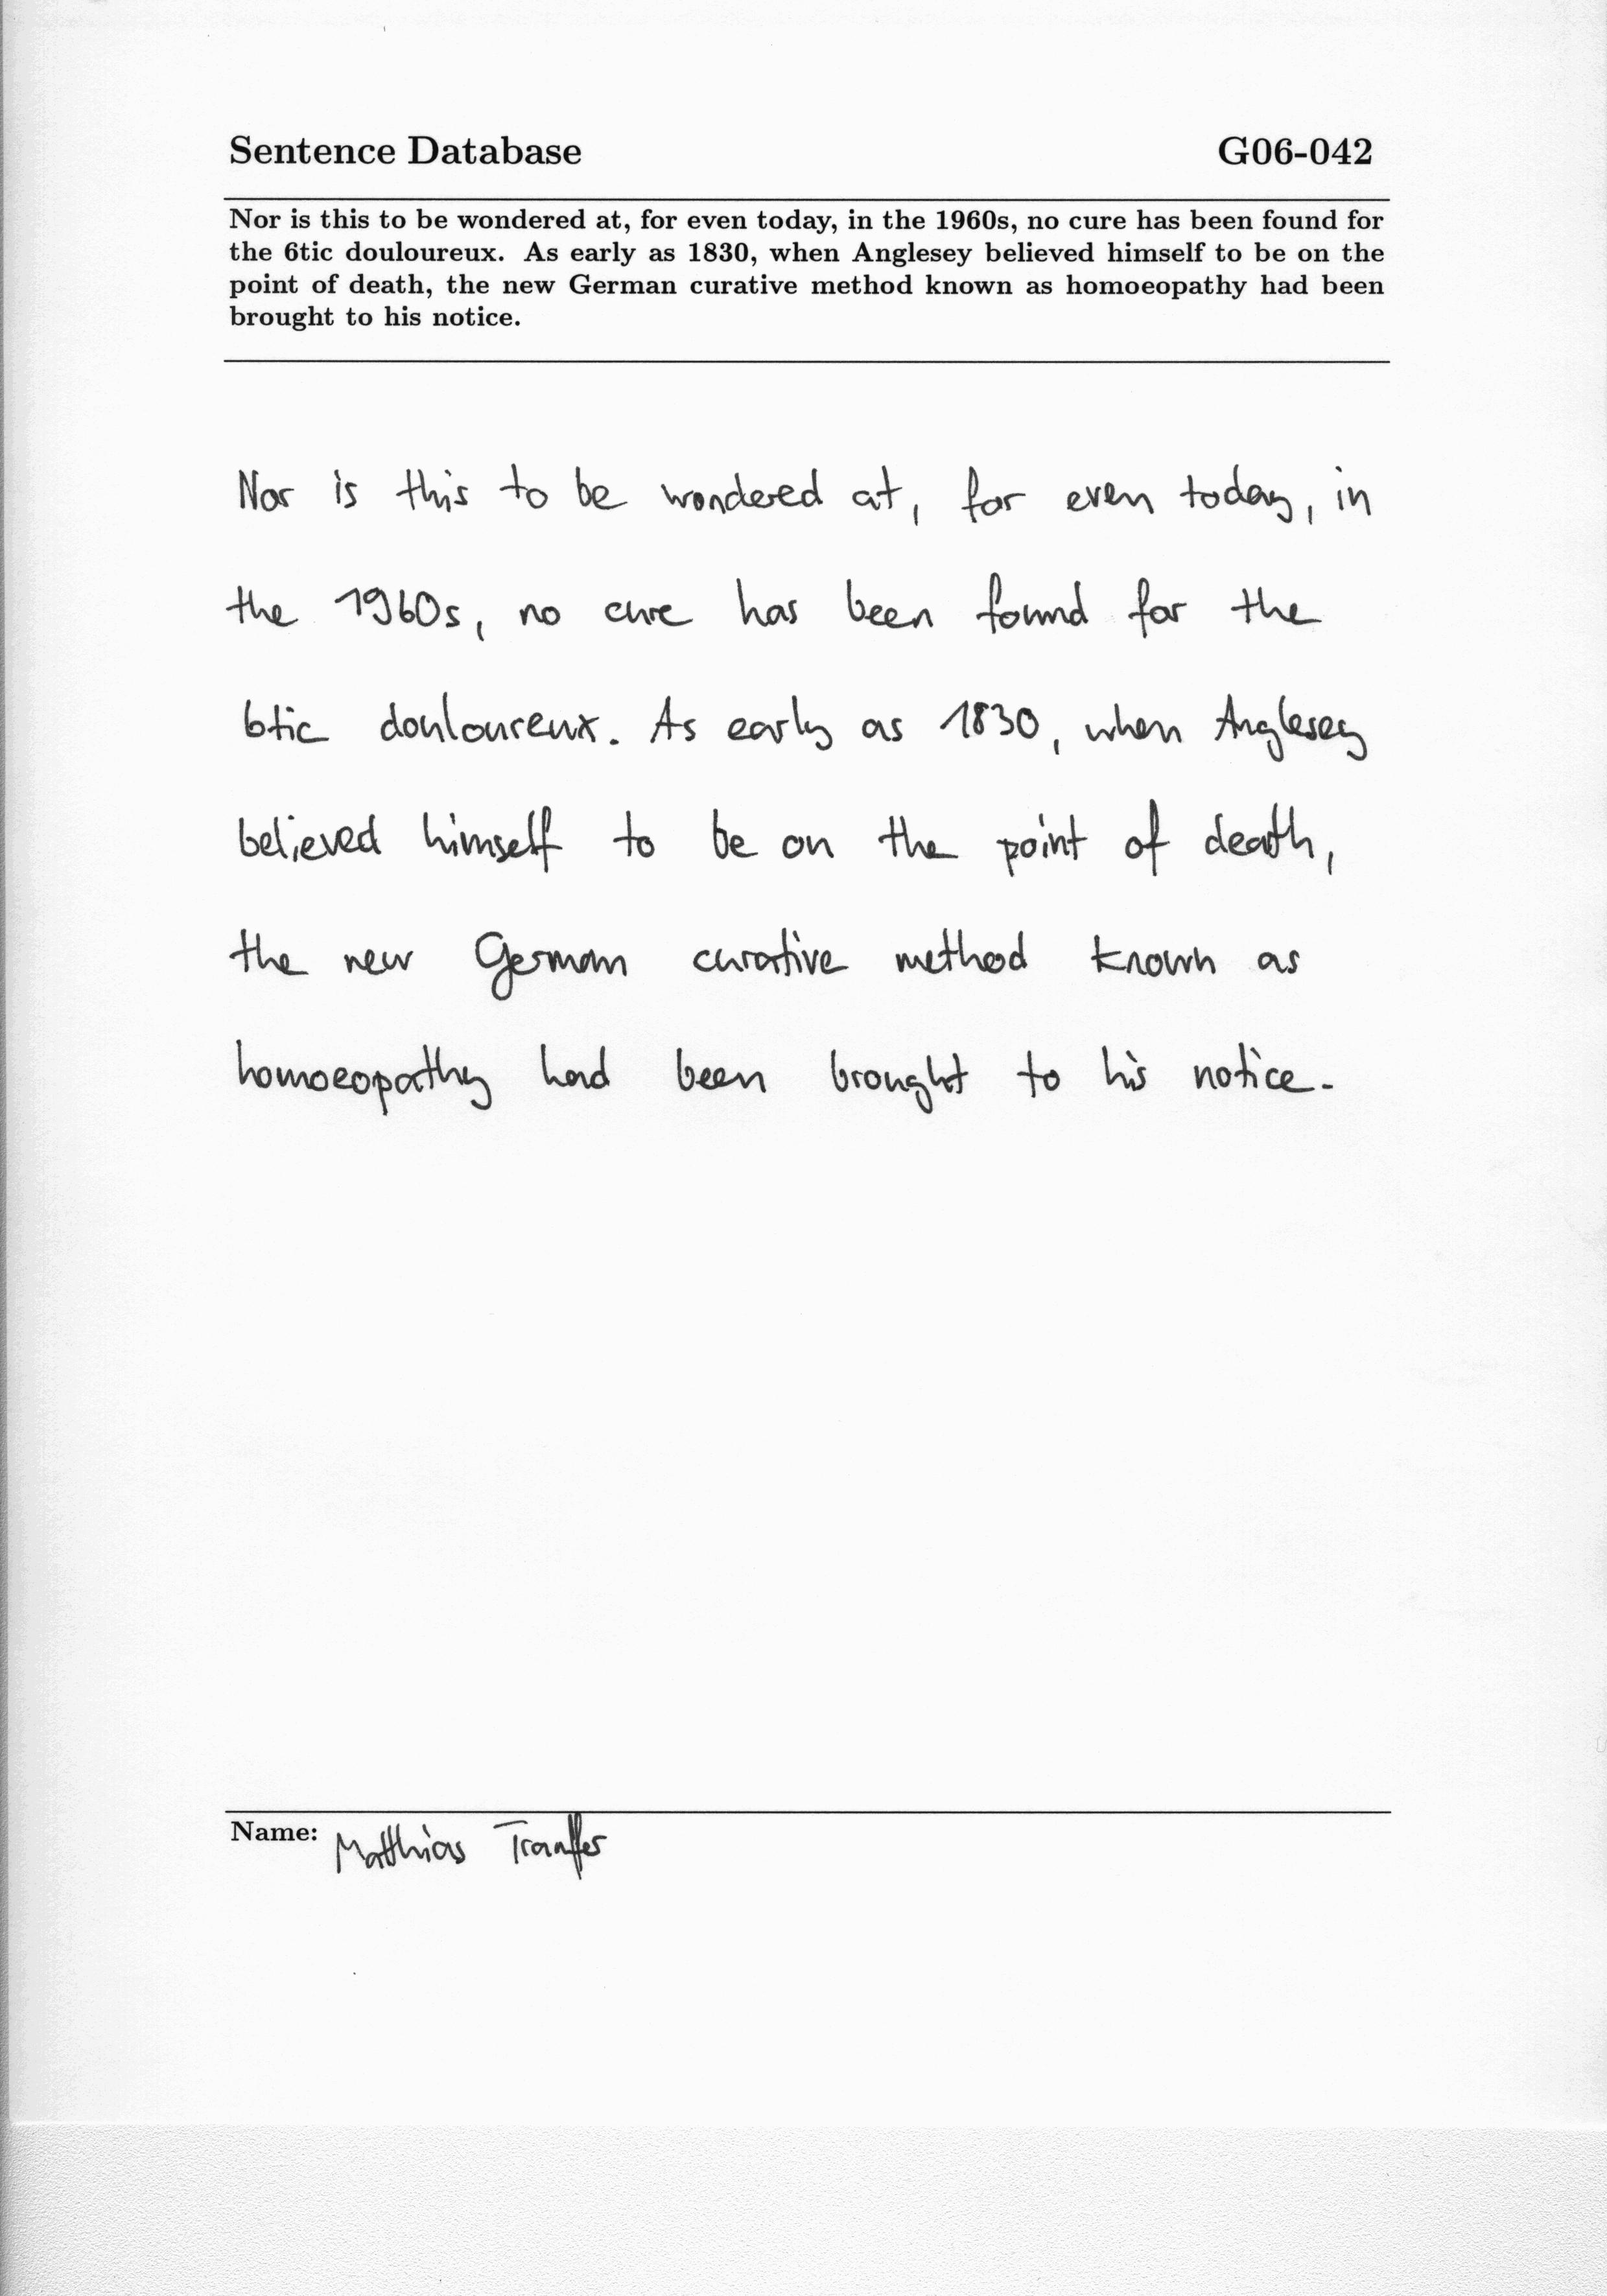 Sentence Database G06-042
Nor is this to be wondered at, for even today, in the 1960s, no cure has been found for
the 6tic douloureux. As early as 1830, when Anglesey believed himself to be on the
point of death, the new German curative method known as homoeopathy had been
brought to his notice.
Nor is this to be wondered at, for even today, in
the 1960s, no cure has been found for the
6tic douloureux. As early as 1830, when Anglesey
believed himself to be on the point of death,
the new German curative method known as
homoeopathy had been brought to his notice.
Name: Matthias